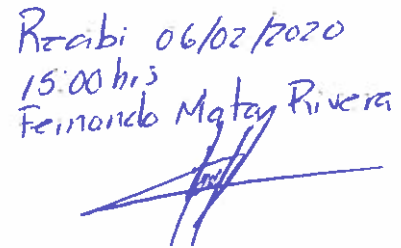 Recibi 06/02/2020
15:00 hrs
Fernando Mata Rivera